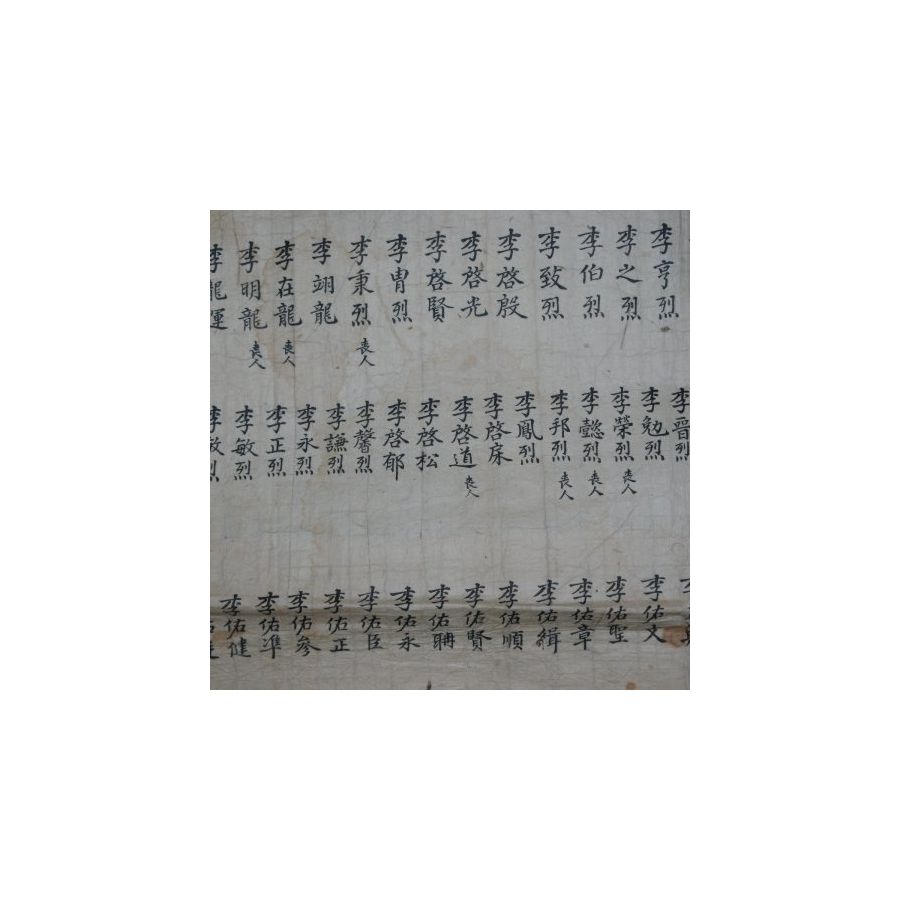 李亨烈
李之烈
李伯烈
李致烈
李啓殷
李啓光
李啓賢
李胄烈
李秉烈 喪人
李翊龍
李在龍 喪人
李明龍 喪人
李龍運
李晉烈
李勉烈
李榮烈 喪人
李懿烈 喪人
李邦烈 喪人
李鳳烈
李啓床
李啓道 喪人
李啓松
李啓郁
李馨烈
李謙烈
李永烈
李正烈
李敏烈
李烈
李佑文
李佑聖
李佑章
李佑緝
李佑順
李佑賢
李佑聃
李佑永
李佑臣
李佑正
李佑參
李佑準
李佑健